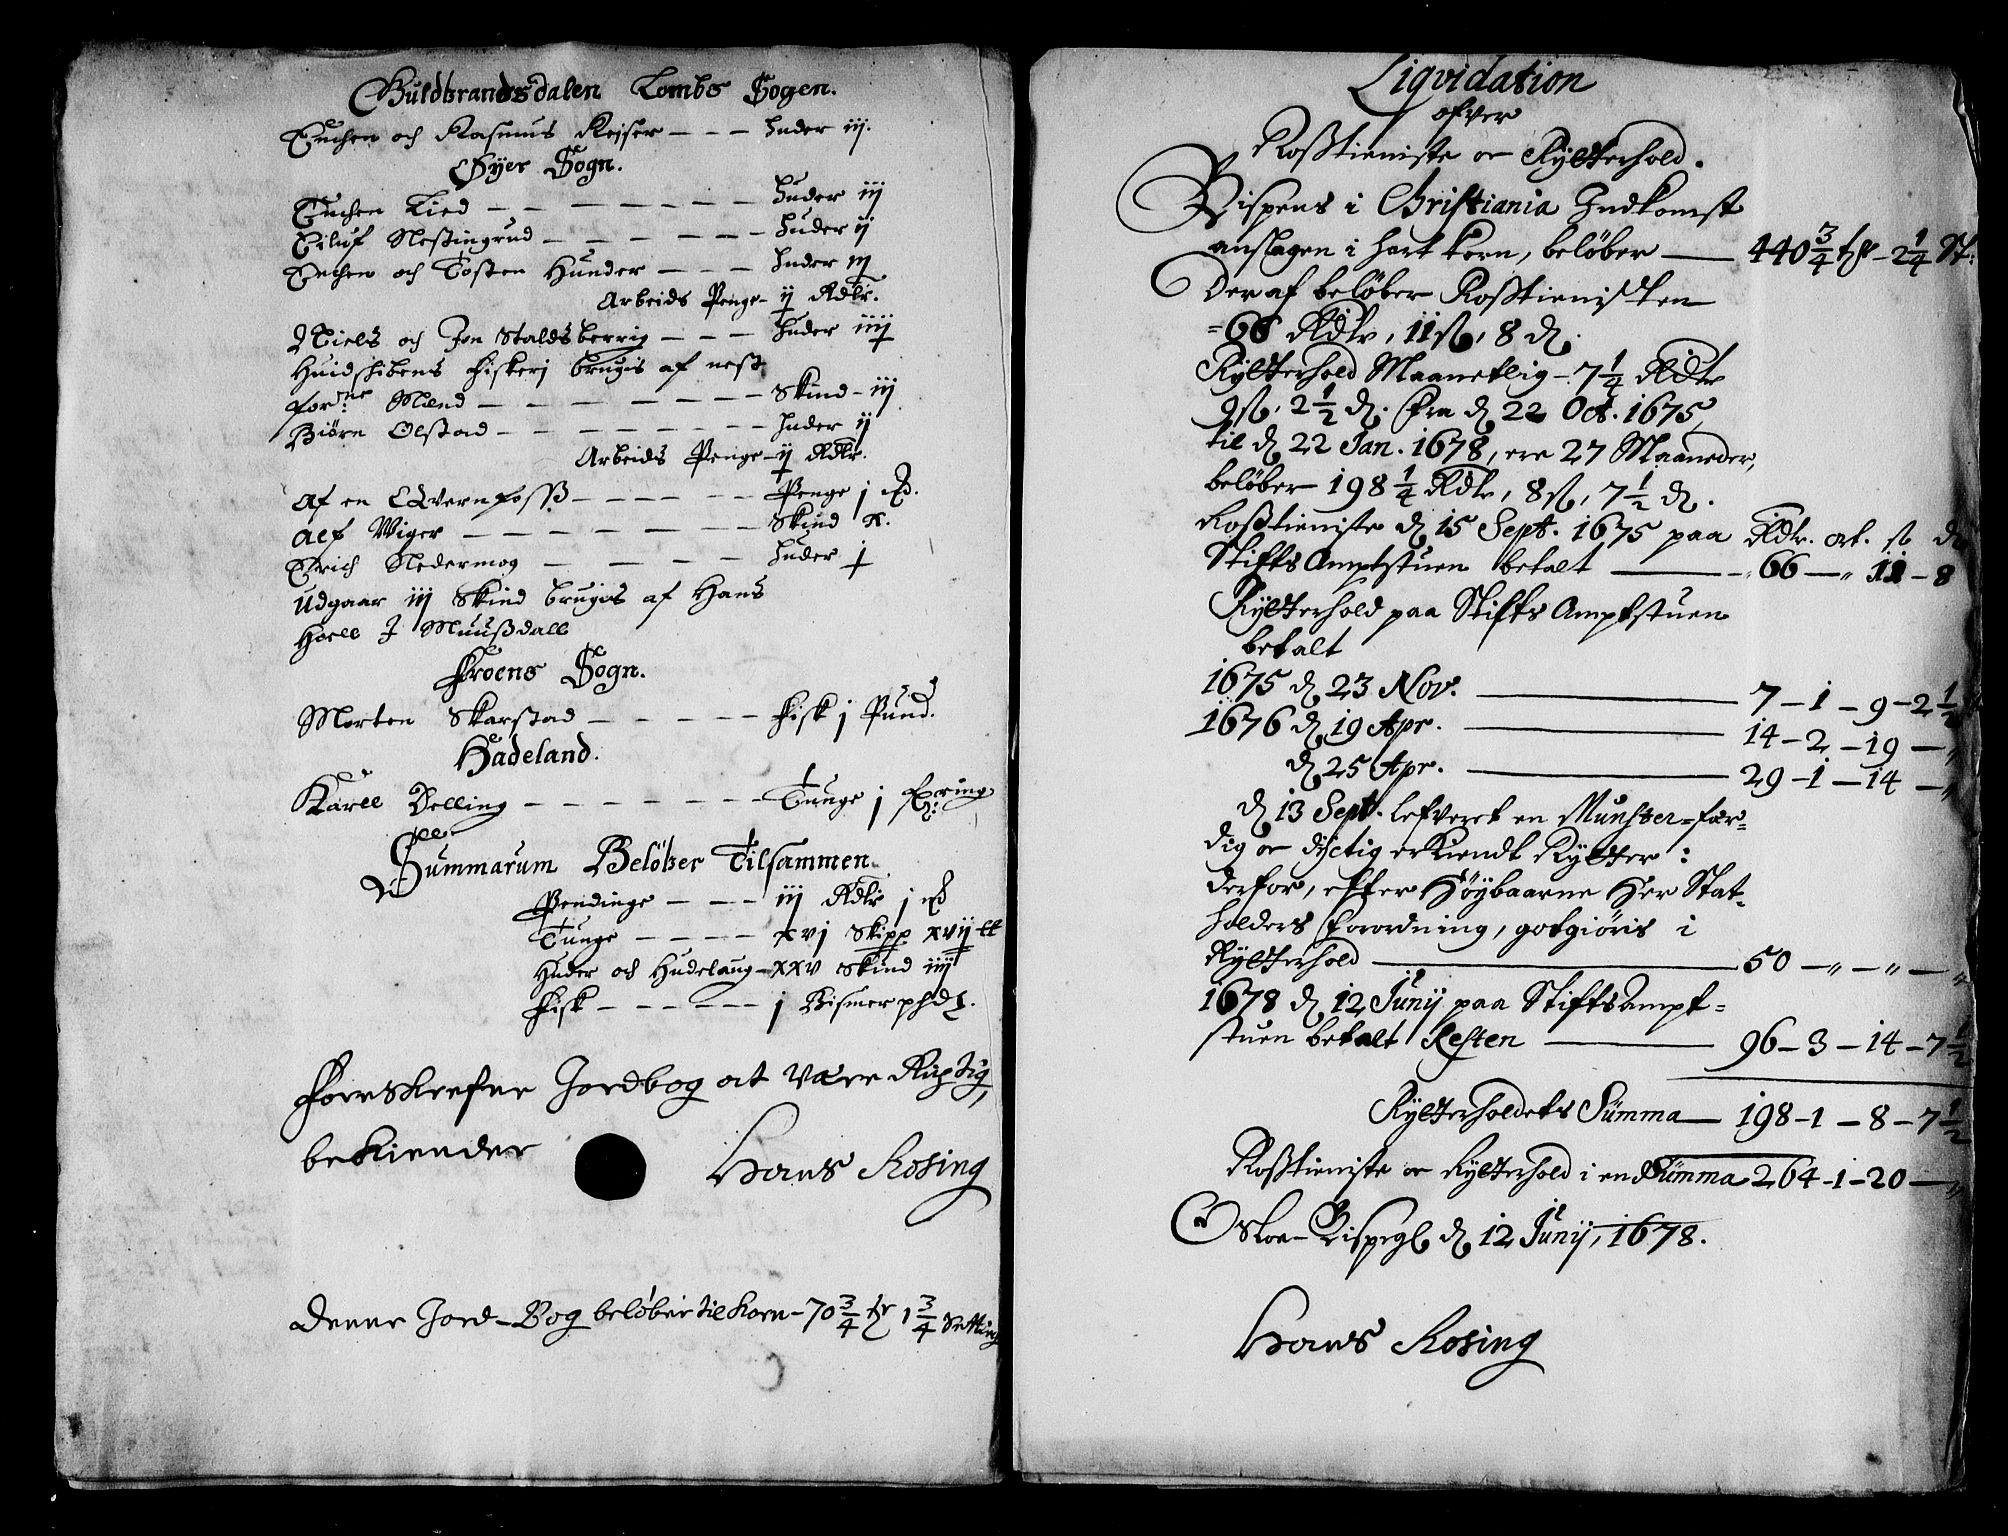 Guldbrandsdalen Lombs Sogen.
Enchen och Rasmus Keiser - - - huder iij.
Öyer Sogn.
Enchen Lied - - - - - - - - huder iij
Eiluf Nestingrud - - - - - - - huder ij
Enchen och Tosten Hunder - - - huder iij
Arbeids Penge - ij Rdlr.
Niels och Jon Staldsberrig - - - huder iiij
Huidshibens fiskerj brugis af nest
forne Mænd - - - - - - - - Skind - iij
Biörn Olstad - - - - - - - - huder ij
Arbeids Penge - ij Rdlr.
Af en Qvernfoss - - - - - - Penge j
Alf Wiger - - - - - - - - Skind x.
Erich Nedermog - - - - - - huder j
Udgaar iij Skind brugis af Hans
Horll J Muussdall
Froens Sogn.
Morten Skarstad - - - - - - fisk j Pund.
Hadeland.
Karll Velling - - - - - - - - Tunge j
Summarum Belöber Tilsammen.
Pendinge - - - iij Rdlr j
Tunge - - - - xvj Skipp xvij
Huder och Hudelaug - xxv Skind iiij
Fisk - - - - - - j Bismerphd.
Forreskrefne Jordbog at være Rigtig,
bekiender
Hans Rosing
Denne Jord-Bog belöber til Korn - 70 3/4 1 3/4 Setting
Liqvidation
ofver
Rosstieniste oc Rytterhold.
Bispens i Christiania Indkomst
anslagen i hart korn, belöber — 440 3/4 - 2 1/4 St:
Der af belöber Rosstienisten
=66 Rdlr, 11 ß, 8 d.
Rytterhold Maanetlig - 7 1/4 Rdlr
9 ß, 2 1/2 d. fra d 22 Oct. 1675,
til d 22 Jan. 1678, ere 27 Maaneder,
belöber 198 1/4 Rdlr, 8 ß, 7 1/2 d.
Rosstieniste d 15 Sept. 1675 paa Rdlr. ort. ß d
Stifts Amptstuen betalt — 66 — „ 11 - 8
Rytterhold paa Stifts Amptstuen
betalt
1675 d 23 Nov. — 7 - 1 - 9 - 2 1/2
1676 d 19 Apr. — 14 - 2 - 19 - „
d 25 Apr. — 29 - 1 - 14 - „
d 13 Sept. lefveret en Munster-fær=
dig oc dyctig erkiendt Rytter:
derfor, efter Höybaarne Her Stat-
holders forordning, gotgiöris i
Rytterhold — 50 - „ - „ - „
1678 d 12 Junij paa StiftsAmpt=
stuen betalt Resten — 96 - 3 - 14 - 7 1/2
Rytterholdets Summa — 198 - 1 - 8 - 7 1/2
Rosstieniste oc Rytterhold i en Summa 264 - 1 - 20 - „
Osloe-Bispegl d 12 Junij, 1678.
Hans Rosing